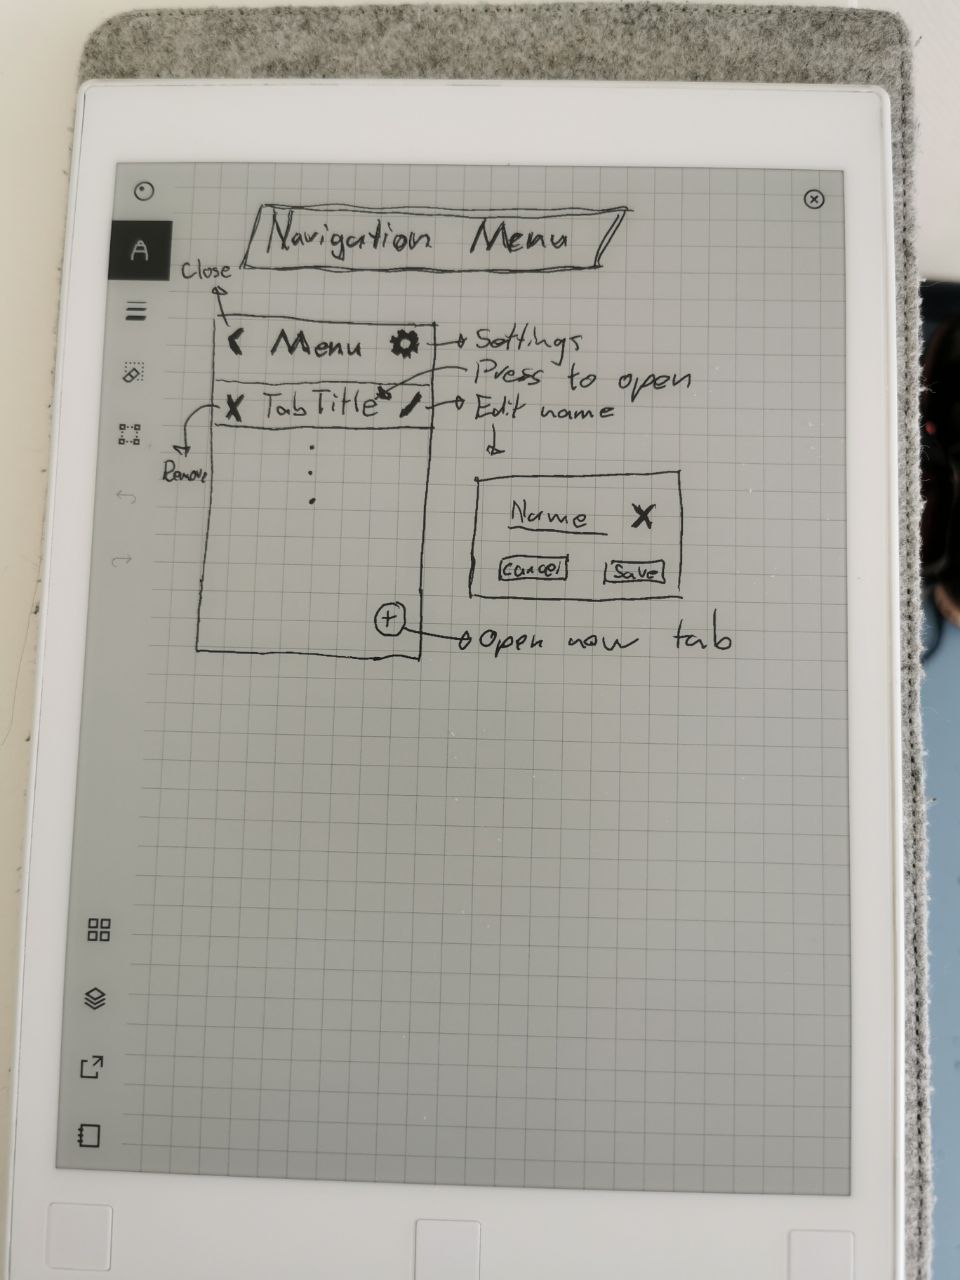 Navigation Menu
Close
Menu
Settings
Press to open
Tab Title
Edit name
Remove
Name X
Cancel Save
+
Open new tab